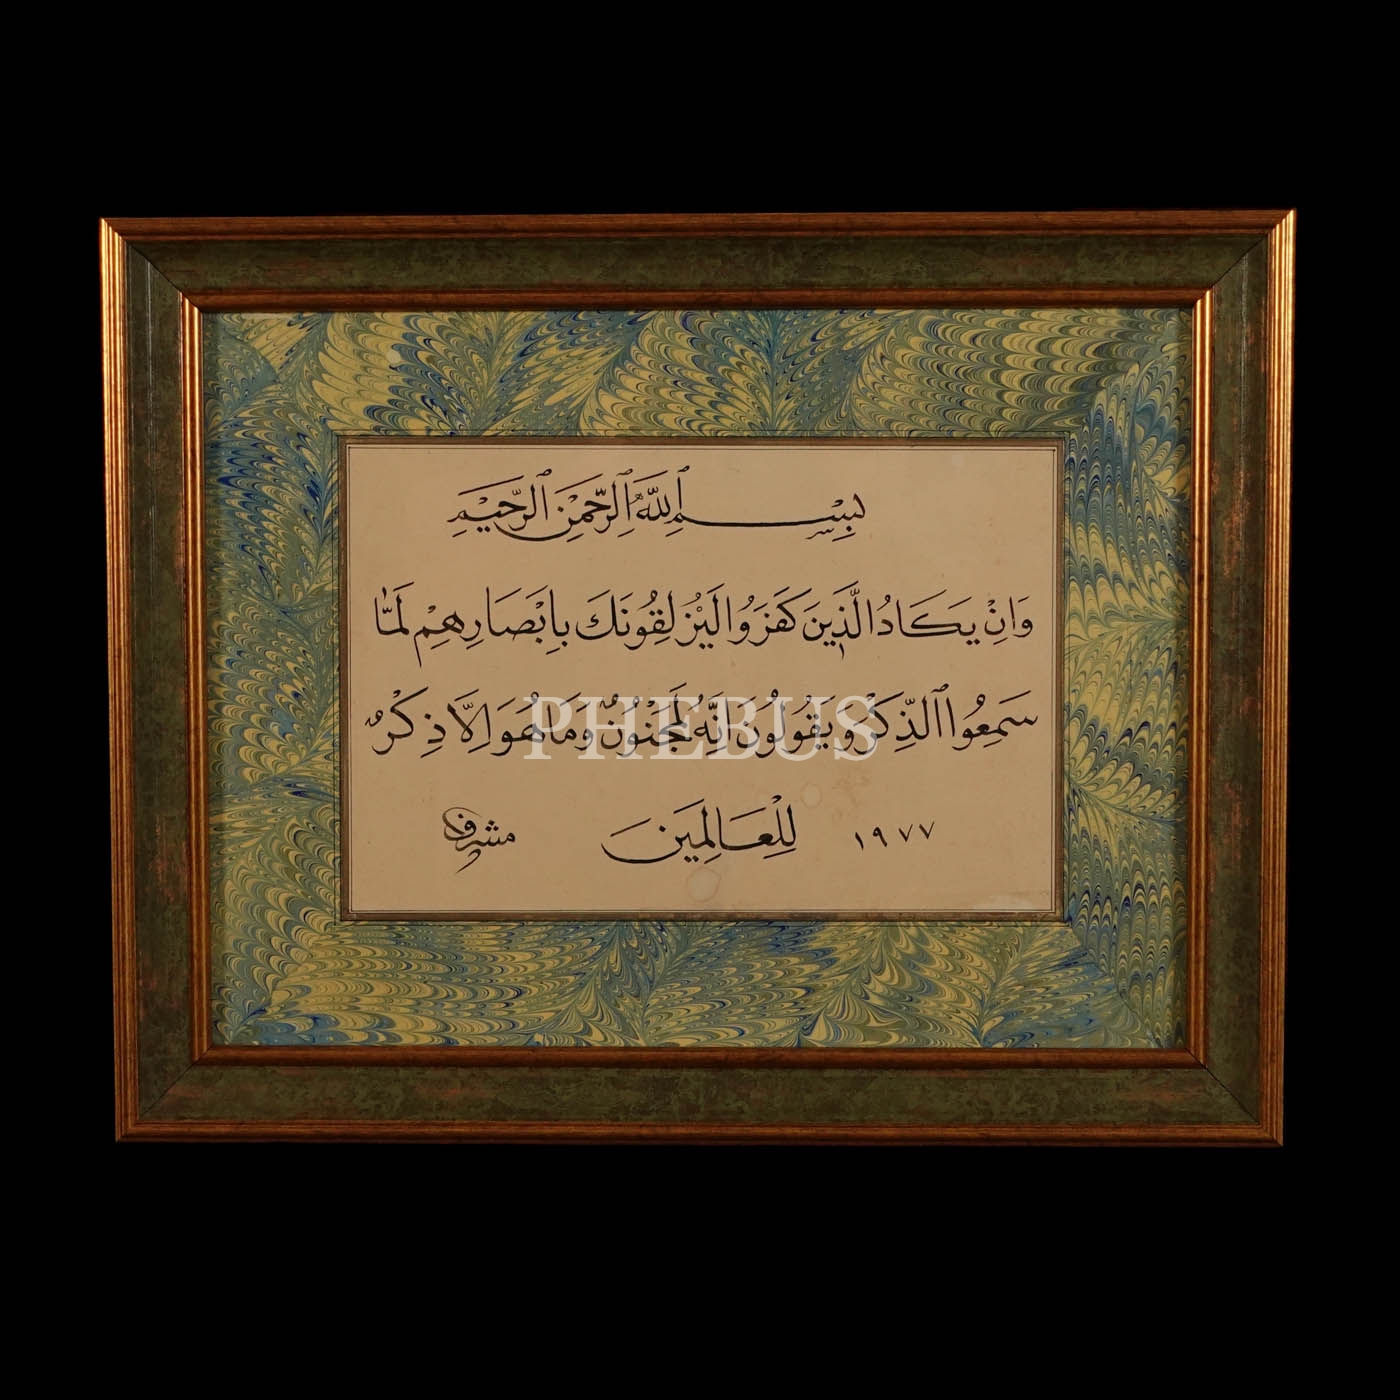 بِسْمِ اللَّهِ الرَّحْمٰنِ الرَّحِيْمِ
وَاِنْ يَكَادُ الَّذِينَ كَفَرَوُا لَيُزْلِقُونَكَ بِاَبْصَارِهِمْ لَمَّا
سَمِعُوا الذِّكْرَ وَيَقُولُونَ اِنَّهُ لَمَجْنُونٌ وَمَا هُوَ اِلَّا ذِكْرٌ
PHEBUS
١٩٧٧ لِلْعَالَمِينَ مشرف